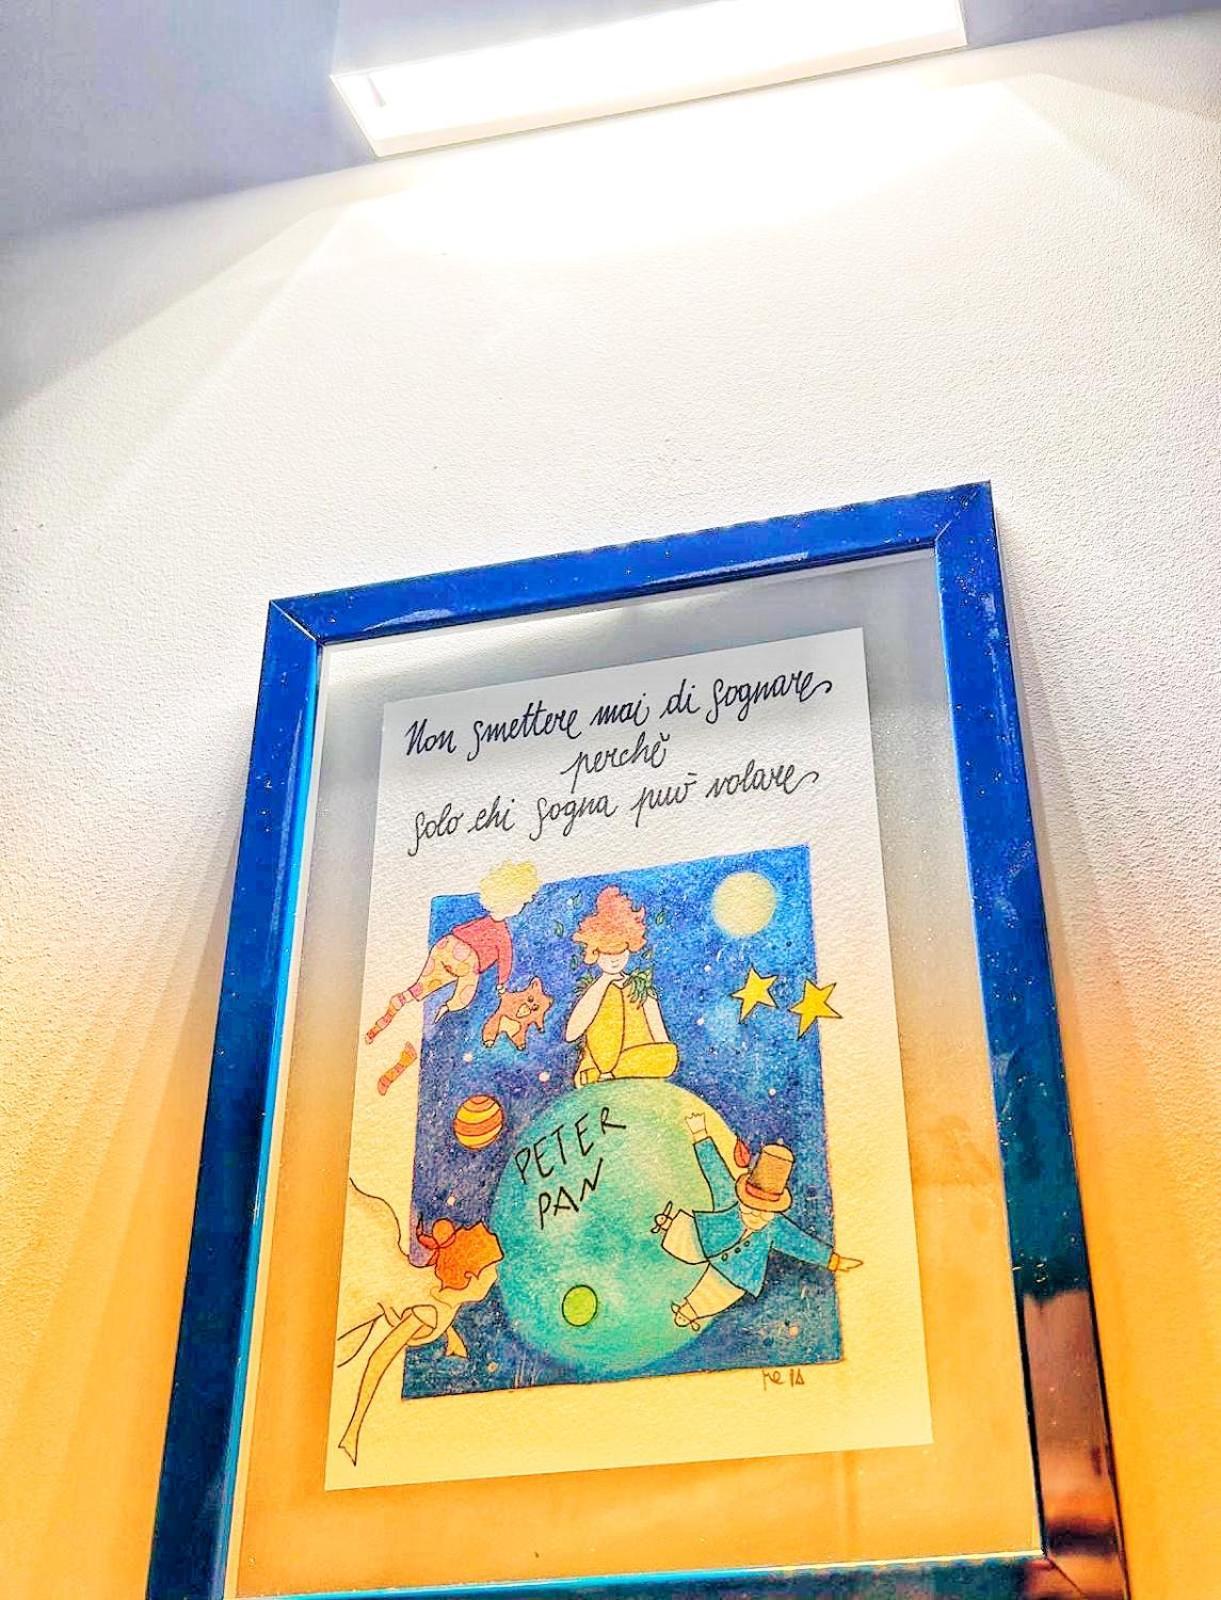 Non smettere mai di sognare
perchè
solo chi sogna può volare
PETER
PAN